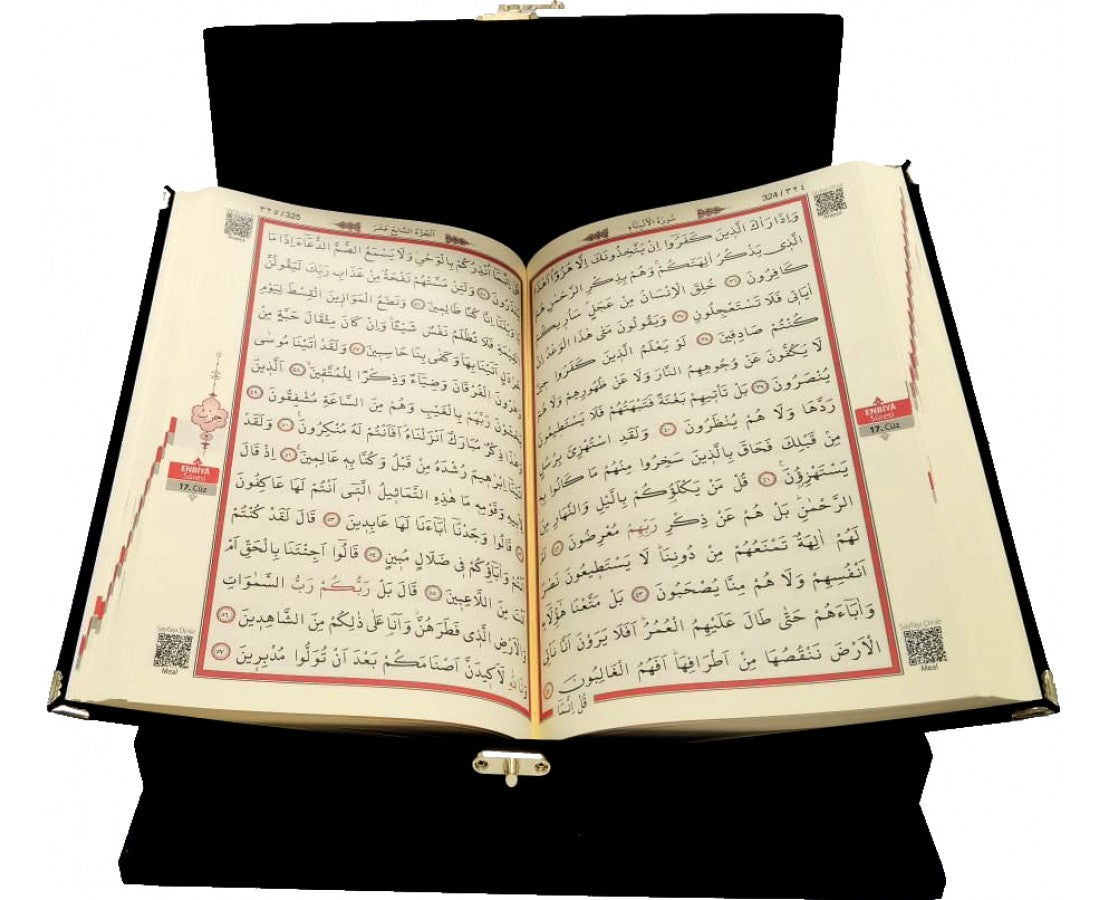 324 / ٣٢٤
سُورَةُ الْاَنْبِيَاءِ
وَاِذَا رَاٰكَ الَّذ۪ينَ كَفَرُٓوا اِنْ يَتَّخِذُونَكَ اِلَّا هُزُوًاۜ اَهٰذَا
الَّذ۪ي يَذْكُرُ اٰلِهَتَكُمْۚ وَهُمْ بِذِكْرِ الرَّحْمٰنِ هُمْ
كَافِرُونَ ٣٦ خُلِقَ الْاِنْسَانُ مِنْ عَجَلٍۜ سَاُر۪يكُمْ
اٰيَات۪ي فَلَا تَسْتَعْجِلُونِ ٣٧ وَيَقُولُونَ مَتٰى هٰذَا الْوَعْدُ اِنْ
كُنْتُمْ صَادِق۪ينَ ٣٨ لَوْ يَعْلَمُ الَّذ۪ينَ كَفَرُوا ح۪ينَ
لَا يَكُفُّونَ عَنْ وُجُوهِهِمُ النَّارَ وَلَا عَنْ ظُهُورِهِمْ وَلَا هُمْ
يُنْصَرُونَ ٣٩ بَلْ تَأْت۪يهِمْ بَغْتَةً فَتَبْهَتُهُمْ فَلَا يَسْتَط۪يعُونَ
رَدَّهَا وَلَا هُمْ يُنْظَرُونَ ٤٠ وَلَقَدِ اسْتُهْزِئَ بِرُسُلٍ
مِنْ قَبْلِكَ فَحَاقَ بِالَّذ۪ينَ سَخِرُوا مِنْهُمْ مَا كَانُوا بِه۪
يَسْتَهْزِؤُ۫نَ۟ ٤١ قُلْ مَنْ يَكْلَؤُ۬كُمْ بِالَّيْلِ وَالنَّهَارِ مِنَ
الرَّحْمٰنِۜ بَلْ هُمْ عَنْ ذِكْرِ رَبِّهِمْ مُعْرِضُونَ ٤٢ اَمْ
لَهُمْ اٰلِهَةٌ تَمْنَعُهُمْ مِنْ دُونِنَاۜ لَا يَسْتَط۪يعُونَ نَصْرَ
اَنْفُسِهِمْ وَلَا هُمْ مِنَّا يُصْحَبُونَ ٤٣ بَلْ مَتَّعْنَا هٰٓؤُ۬لَٓاءِ
وَاٰبَٓاءَهُمْ حَتّٰى طَالَ عَلَيْهِمُ الْعُمُرُۜ اَفَلَا يَرَوْنَ اَنَّا نَأْتِي
الْاَرْضَ نَنْقُصُهَا مِنْ اَطْرَافِهَاۜ اَفَهُمُ الْغَالِبُونَ ٤٤
قُلْ اِنَّمَٓا
ENBİYA
Sûresi
17. Cüz
Sayfayı Dinle
Meal
325 / ٣٢٥
اَلْجُزْءُ السَّابِعَ عَشَرَ
قُلْ اِنَّمَٓا اُنْذِرُكُمْ بِالْوَحْيِۘ وَلَا يَسْمَعُ الصُّمُّ الدُّعَٓاءَ اِذَا مَا
يُنْذَرُونَ ٤٥ وَلَئِنْ مَسَّتْهُمْ نَفْحَةٌ مِنْ عَذَابِ رَبِّكَ لَيَقُولُنَّ
يَا وَيْلَنَٓا اِنَّا كُنَّا ظَالِم۪ينَ ٤٦ وَنَضَعُ الْمَوَاز۪ينَ الْقِسْطَ لِيَوْمِ
الْقِيٰمَةِ فَلَا تُظْلَمُ نَفْسٌ شَيْـًٔاۜ وَاِنْ كَانَ مِثْقَالَ حَبَّةٍ مِنْ
خَرْدَلٍ اَتَيْنَا بِهَاۜ وَكَفٰى بِنَا حَاسِب۪ينَ ٤٧ وَلَقَدْ اٰتَيْنَا مُوسٰى
وَهٰرُونَ الْفُرْقَانَ وَضِيَٓاءً وَذِكْرًا لِلْمُتَّق۪ينَۙ ٤٨ اَلَّذ۪ينَ
يَخْشَوْنَ رَبَّهُمْ بِالْغَيْبِ وَهُمْ مِنَ السَّاعَةِ مُشْفِقُونَ ٤٩
وَهٰذَا ذِكْرٌ مُبَارَكٌ اَنْزَلْنَاهُۜ اَفَاَنْتُمْ لَهُ مُنْكِرُونَ۟ ٥٠ وَلَقَدْ
اٰتَيْنَٓا اِبْرٰه۪يمَ رُشْدَهُ مِنْ قَبْلُ وَكُنَّا بِه۪ عَالِم۪ينَۚ ٥١ اِذْ قَالَ
لِاَب۪يهِ وَقَوْمِه۪ مَا هٰذِهِ التَّمَاث۪يلُ الَّت۪ٓي اَنْتُمْ لَهَا عَاكِفُونَ
٥٢ قَالُوا وَجَدْنَٓا اٰبَٓاءَنَا لَهَا عَابِد۪ينَ ٥٣ قَالَ لَقَدْ كُنْتُمْ
اَنْتُمْ وَاٰبَٓاؤُ۬كُمْ ف۪ي ضَلَالٍ مُب۪ينٍ ٥٤ قَالُٓوا اَجِئْتَنَا بِالْحَقِّ اَمْ
اَنْتَ مِنَ اللَّاعِب۪ينَ ٥٥ قَالَ بَلْ رَبُّكُمْ رَبُّ السَّمٰوَاتِ
وَالْاَرْضِ الَّذ۪ي فَطَرَهُنَّۘ وَاَنَا۬ عَلٰى ذٰلِكُمْ مِنَ الشَّاهِد۪ينَ ٥٦
وَتَاللّٰهِ لَاَك۪يدَنَّ اَصْنَامَكُمْ بَعْدَ اَنْ تُوَلُّوا مُدْبِر۪ينَ ٥٧
حزب
ENBİYA
Sûresi
17. Cüz
Sayfayı Dinle
Meal